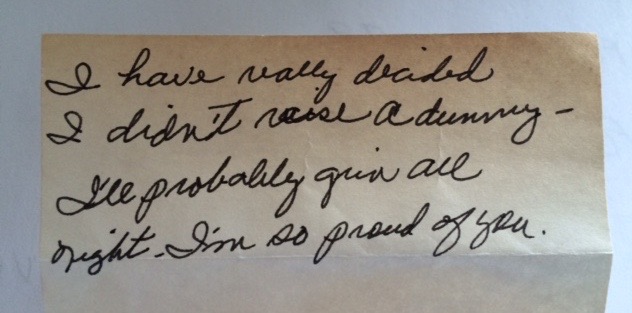 I have really decided
I didn't raise a dummy -
I'll probably grin all
night. I'm so proud of you.